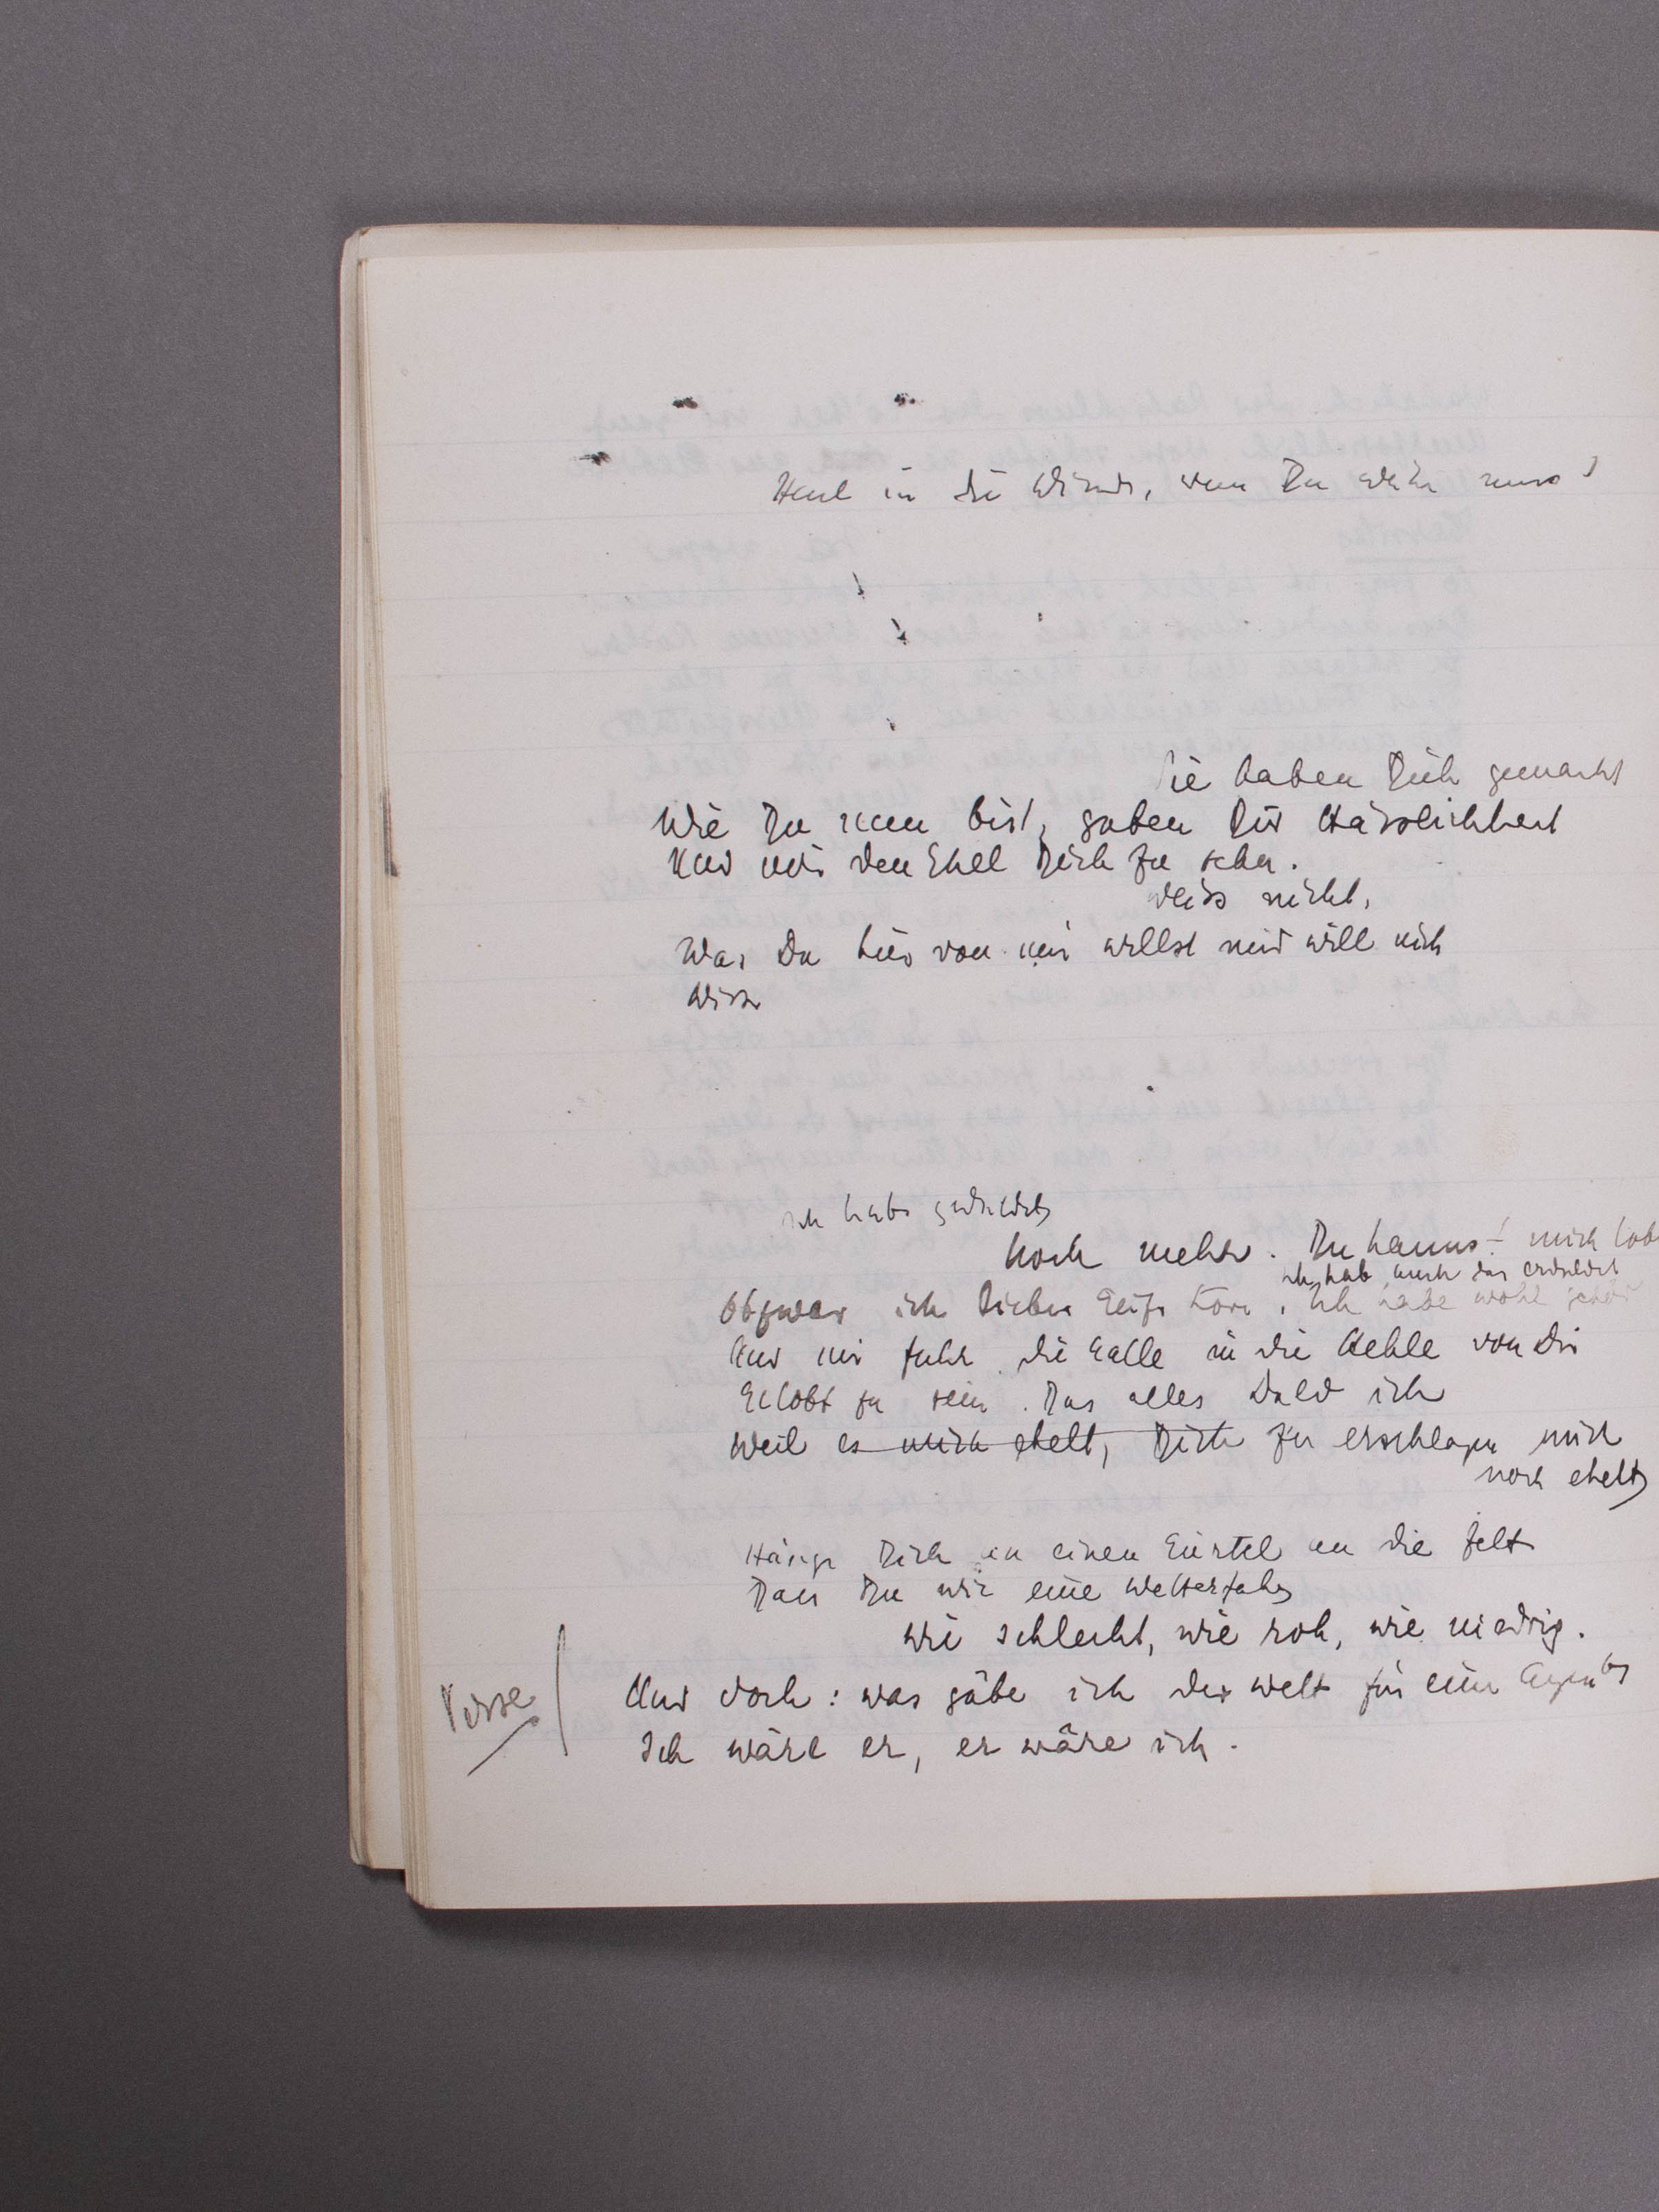 Heul in die Winde, wenn Du
Sie haben Dich gemacht
Wie Du nun bist, gaben Dir Hässlichkeit
Und mir den Ekel Dich zu sehn.
weiss nicht,
Was Du hier von mir willst und will nich
Wissn
Ich habs geduldet
Noch mehr. Du kannst mich
ich hab auch das erduldet
Obzwar ich lieber Gift hör, Ich habe wohl
Und mir fuhr die Galle in die Kehle von Dir
Gelobt zu sein. Das alles duld ich
Weil es mich ekelt, Dich zu erschlagen mich
noch ekelt
Hänge Dich an einen Gürtel an die
Dass Du wie eine Wetterfahn
Wie schlecht, wie roh, wie niedrig.
Und doch: was gäbe ich der Welt für ein
Ich wäre er, er wäre ich.